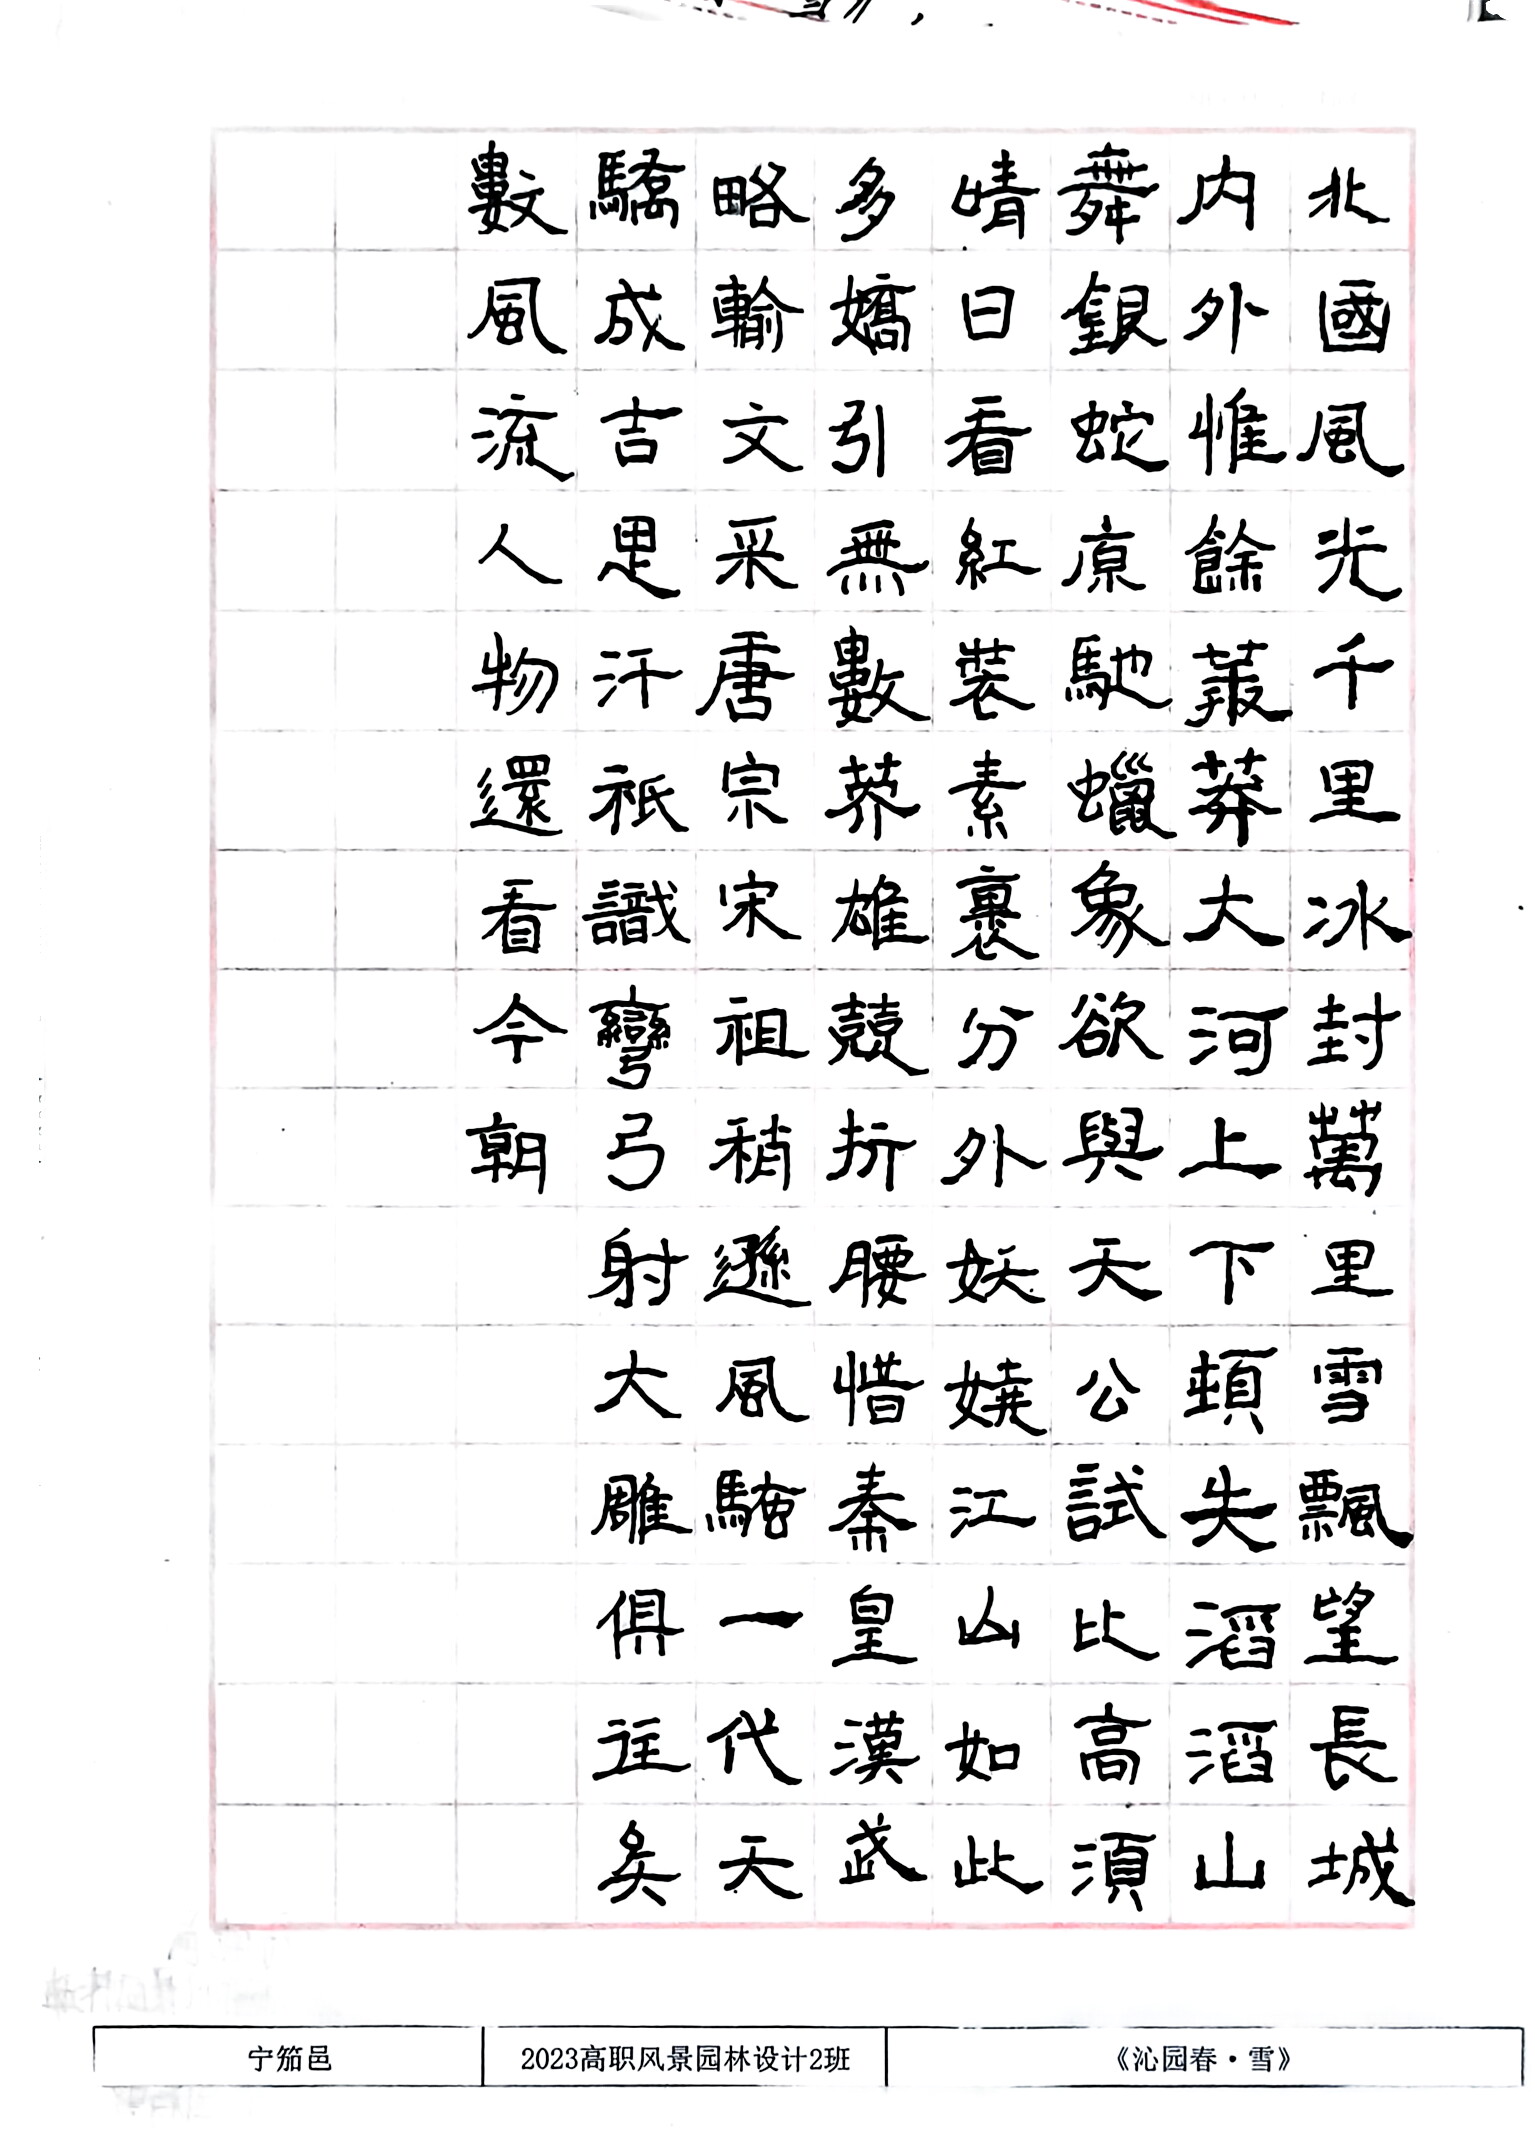 北國風光千里冰封萬里雪飄望長城
内外惟餘莽莽大河上下頓失滔滔山
舞銀蛇原馳蠟象欲與天公試比高須
晴日看紅裝素裹分外妖嬈江山如此
多嬌引無數英雄競折腰惜秦皇漢武
略輸文采唐宗宋祖稍遜風騷一代天
驕成吉思汗祇識彎弓射大雕俱往矣
數風流人物還看今朝
宁笳邑
2023高职风景园林设计2班
《沁园春·雪》